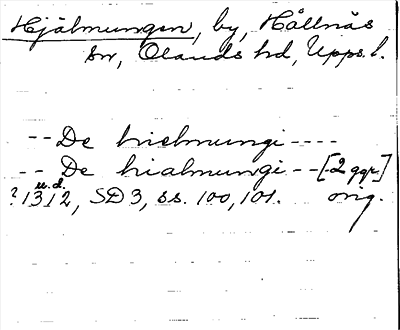 Hjälmungen, by, Hållnäs
sn, Olands hd, Upps. l.
-- De hielmungi ----
-- De hialmungi -- [2 ggr]
u.d.
? 1312, SD 3, ss. 100, 101. orig.